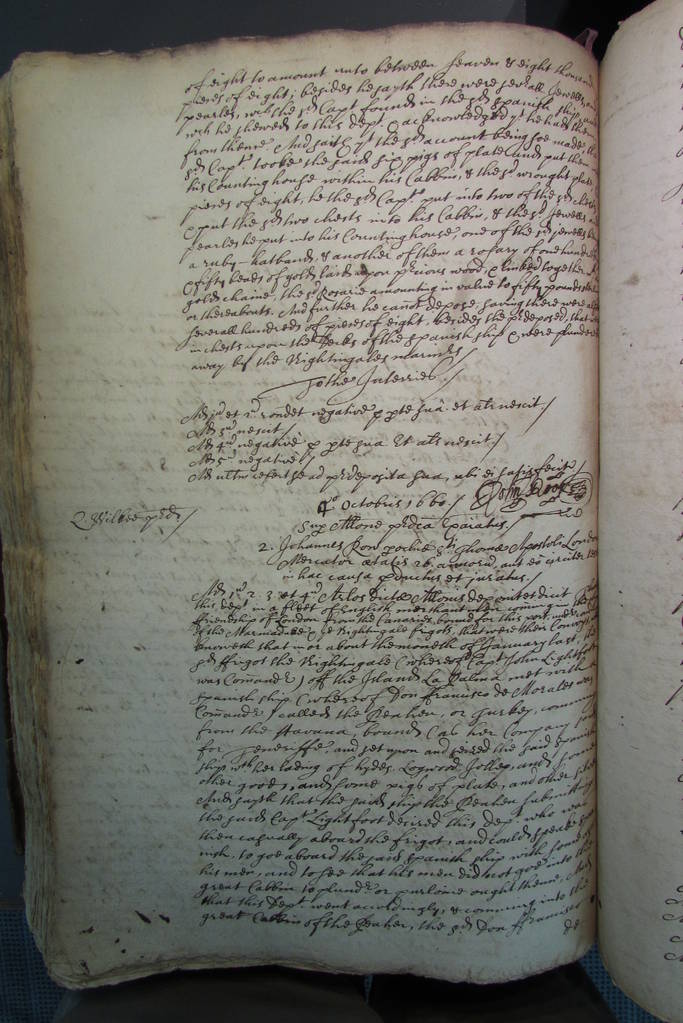 of eight to amount unto betweene seaven & eight thousand
pieces of eight; besides he sayth there were severall Jewells, and
pearles, wch the sd Capt found in the sd Spanish ship, and
wch he shewed to this dept & acknowledged yt he had them
from thence. And saith yt the sd account being soe made the
sd Capt. tooke the said six pigs of plate and put them in
his Counting house within his Cabbin, & the sd wrought plate,
pieces of eight, he the sd Capt. put into two of the sd chests
& put the sd two chests into his Cabbin, & the sd Jewells and
pearles he put into his Counting house, one of the sd jewells being
a ruby-hatband, & another of them a rosary of one hundred
& fifty beads of gold laid upon pretious wood, & linked together
gold chaine, the sd Rosarie amounting in value to fifty pounds
or thereabouts. And further he cannot depose, saving there were also
severall hundreds of pieces of eight, besides the predeposed, that
in chests upon the decks of the Spanish ship & were plundered
away by the Nightingales mariners./
To the Interries./
Ad 1um et 2um rendet negative p pte sua et alr nescit./
Ad 3um nescit/
Ad 4um negative p pte sua et alr nescit./
Ad 5um negative/
Ad ultm refert se ad predeposita sua, ubi ei satisfecit/
4to Octobris 1660/ John Rook
Sup Allone predca exaiatus./
2. Wilkes predt/
2. Johannes Row pochie Sti Thomæ Apostoli London
Mercator ætatis 26 annorum, aut eo circiter testis
in hac causa productus et juratus./
Ad 1um 2. 3. et 4um Arlos dictæ Allonis deponit et dicit
this dept in a fleet of English merchant men coming in the
friendship of London from the Canaries bound for this port, under
of the Marmaduke & ye Nightingale frigots, that were their Convoy
knoweth that in or about the moneth of January last, the
sd ffrigot the Nightingale (whereof Capt John Lightfoot
was Comander) off the Island La Palma met with a
Spanish ship (whereof Don ffrancisco de Morales was
Comander) called the Peahen, or Turkey, coming
from the Havana, bound (as her Company said)
for Teneriffe, and set upon and seized the said Spanish
ship wth her lading of hydes, Logwood, Jollep, and some
other goods, and some pigs of plate, and other silver
And sayth that the said ship the Peahen submitting
the said Capt Lightfoot desired this dept who was
then casually aboard the frigot, and could speake Spa-
nish, to goe aboard the said Spanish ship with some of
his men, and to see that his men did not goe into the
great Cabbin to plunder or purloine ought thence, And
that this dept went accordingly, & comming into the
great Cabbin of the Peahen, the sd Don ffrancisco
de